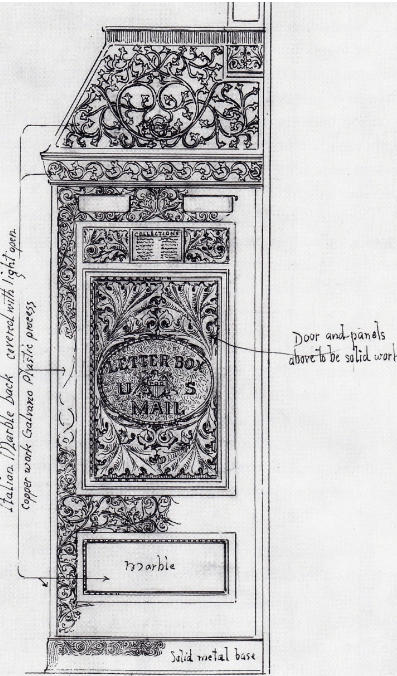 COLLECTIONS
LETTER BOX
U S
MAIL
Door and panels
above to be solid work
Italian Marble back covered with light open
Copper work Galvano Plastic process
marble
Solid metal base